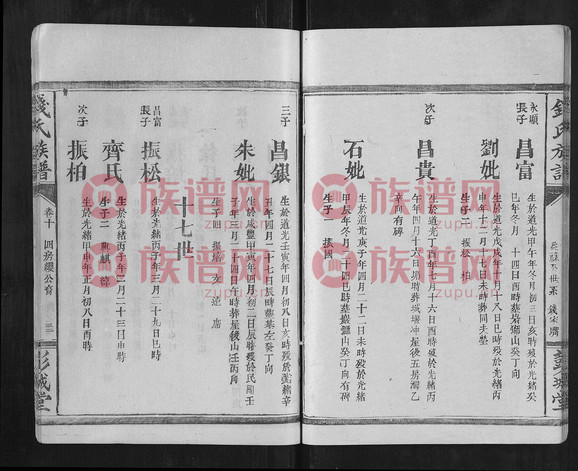 錢氏族譜
永順長子
昌富
生於道光甲午年冬月初三日亥時歿於光緒癸
巳年冬月十四日酉時葬
山癸丁向
劉妣
生於道光戊戌年十月十八日巳時歿於光緒丙
申年十二月十七日未時葬同夫塋
生子二 振松 柏
次子
昌貴
生於道光丁酉年七月十六日酉時歿於光緒丙
午年四月十六日
時葬城壕冲屋後五房灣乙
辛向有碑
石妣
生於道光庚子年
月十二日未時歿於光緒
甲辰年冬月二十四日巳時葬
山癸丁向有碑
生子一 振國
三子
昌銀
生於道光壬寅年四月初八日亥時歿於
辛
丑年四月二十七日辰時葬
左癸丁向
朱妣
生於咸豐甲寅年四月初二日辰時歿於民國壬
子年三月二十四日
時葬屋後山壬丙向
生子四 振
十七世
昌富長子
振松
生於光緒丙子年三月二十九日巳時
齊氏
生於光緒丙子年二月二十三日申時
生子二
麒
次子
振柏
生於光緒甲申年正月初八日酉時
錢氏族譜
卷十
四房纓公齊
彭城堂
彭城堂
族谱网
zupu.cn